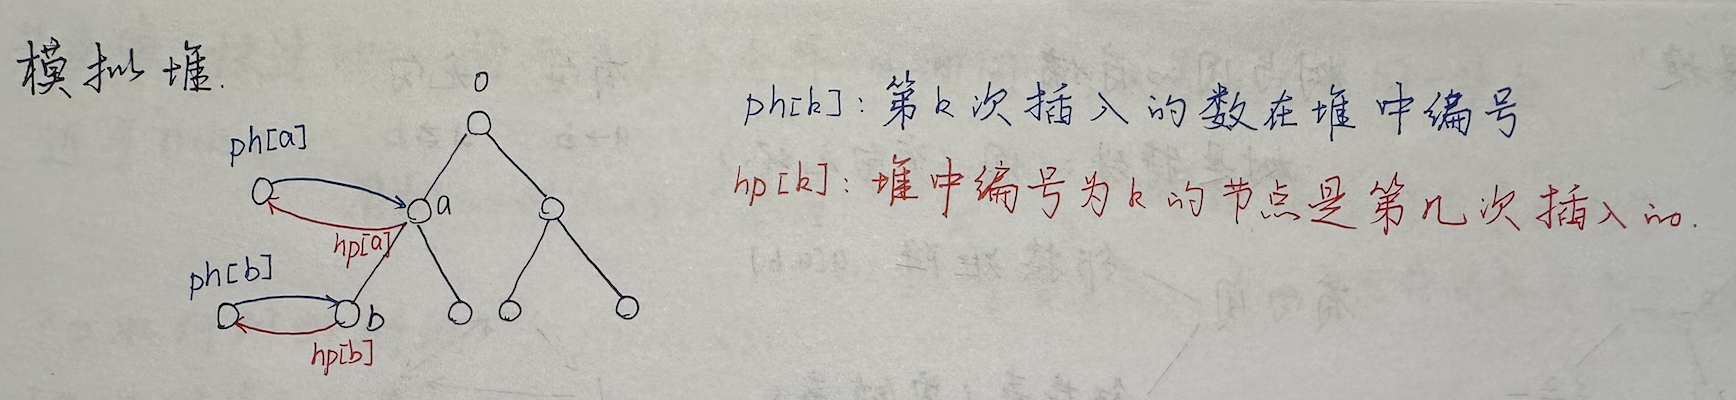 模拟堆.
0
ph[k]: 第k次插入的数在堆中编号
ph[a]
hp[k]: 堆中编号为k的节点是第几次插入的.
a
hp[a]
ph[b]
b
hp[b]